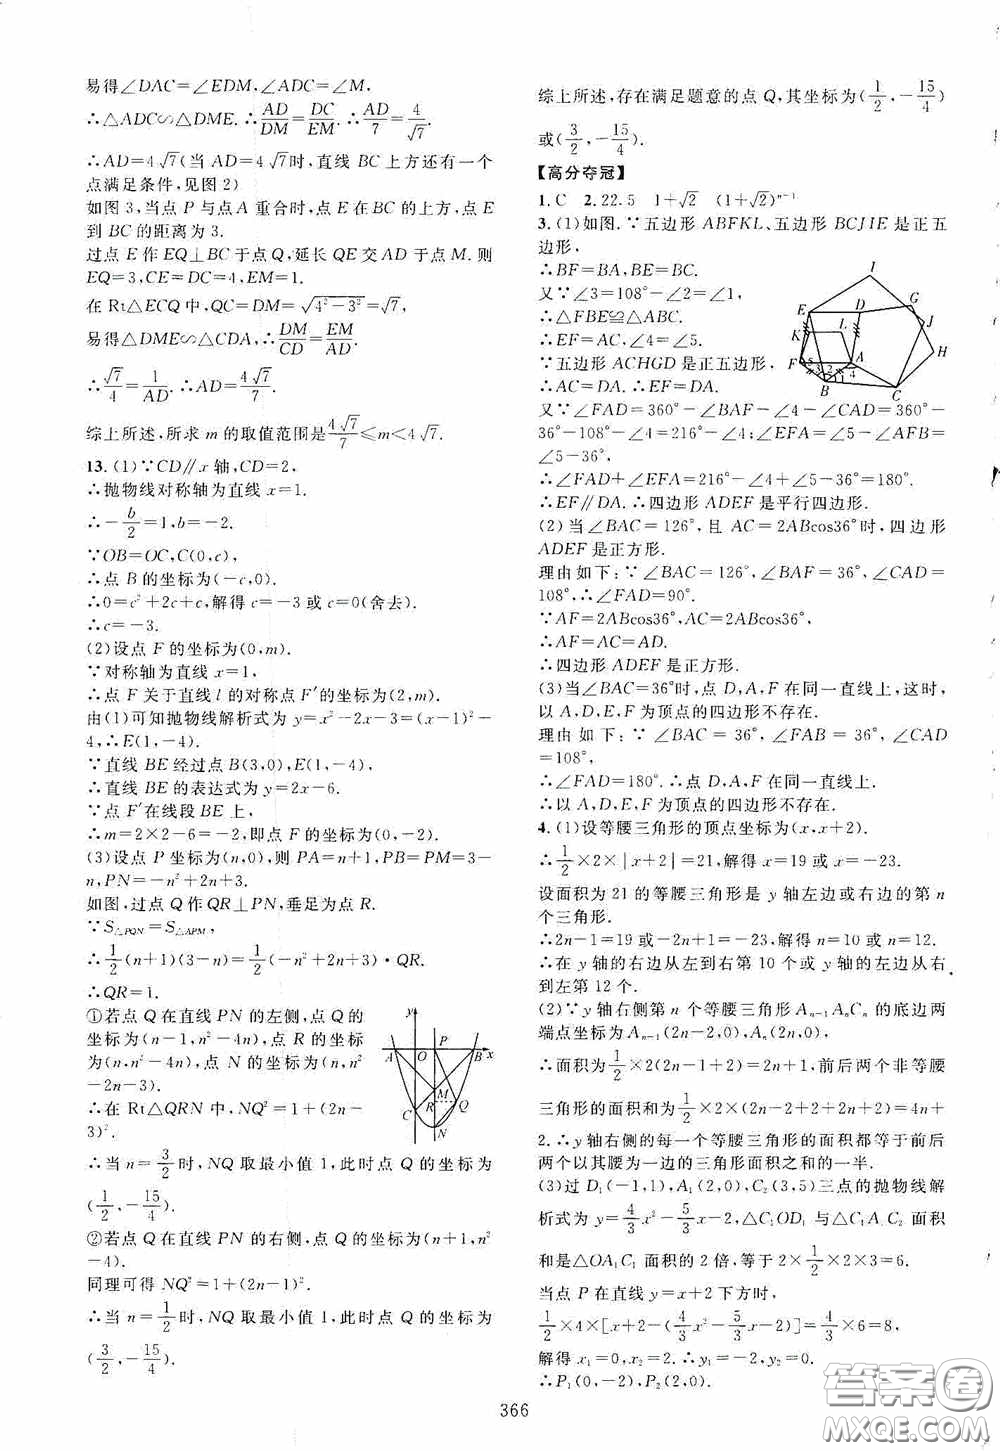 易得∠DAC=∠EDM,∠ADC=∠M,
∴△ADC∽△DME.∴AD/DM=DC/EM.∴AD/7=4/√7.
∴AD=4√7(当 AD=4√7时,直线 BC 上方还有一个
点满足条件,见图2)
如图3,当点 P 与点 A 重合时,点 E 在 BC 的上方,点 E
到 BC 的距离为3.
过点 E 作 EQ⊥BC 于点 Q,延长 QE 交 AD 于点 M.则
EQ=3,CE=DC=4,EM=1.
在 Rt△ECQ 中,QC=DM=√(4²-3²)=√7,
易得△DME∽△CDA,∴DM/CD=EM/AD.
∴√7/4=1/AD.∴AD=4√7/7.
综上所述,所求 m 的取值范围是4√7/7≤m<4√7.
13.(1)∵CD∥x 轴,CD=2,
∴抛物线对称轴为直线 x=1.
∴-b/2=1,b=-2.
∵OB=OC,C(0,c),
∴点 B 的坐标为(-c,0).
∴0=c²+2c+c,解得 c=-3 或 c=0(舍去).
∴c=-3.
(2)设点 F 的坐标为(0,m).
∵对称轴为直线 x=1,
∴点 F 关于直线 l 的对称点 F′的坐标为(2,m).
由(1)可知抛物线解析式为 y=x²-2x-3=(x-1)²-
4,∴E(1,-4).
∵直线 BE 经过点 B(3,0),E(1,-4),
∴直线 BE 的表达式为 y=2x-6.
∵点 F′在线段 BE 上,
∴m=2×2-6=-2,即点 F 的坐标为(0,-2).
(3)设点 P 坐标为(n,0),则 PA=n+1,PB=PM=3-
n,PN=-n²+2n+3.
如图,过点 Q 作 QR⊥PN,垂足为点 R.
∵S△PQN=S△APM,
∴1/2(n+1)(3-n)=1/2(-n²+2n+3)·QR.
∴QR=1.
①若点 Q 在直线 PN 的左侧,点 Q 的
坐标为(n-1,n²-4n),点 R 的坐标
为(n,n²-4n),点 N 的坐标为(n,n²
-2n-3).
∴在 Rt△QRN 中,NQ²=1+(2n-
3)².
∴当 n=3/2时,NQ 取最小值1,此时点 Q 的坐标为
(1/2,-15/4).
②若点 Q 在直线 PN 的右侧,点 Q 的坐标为(n+1,n²
-4).
同理可得 NQ²=1+(2n-1)².
∴当 n=1/2时,NQ 取最小值1,此时点 Q 的坐标为
(3/2,-15/4).
y
A O P B x
M
C R Q
N
综上所述,存在满足题意的点 Q,其坐标为(1/2,-15/4)
或(3/2,-15/4).
【高分夺冠】
1.C 2.22.5 1+√2 (1+√2)ⁿ⁻¹
3.(1)如图.∵五边形 ABFKL、五边形 BCJIE 是正五
边形,
∴BF=BA,BE=BC.
又∵∠3=108°-∠2=∠1,
∴△FBE≌△ABC.
∴EF=AC,∠4=∠5.
∵五边形 ACHGD 是正五边形,
∴AC=DA.∴EF=DA.
又∵∠FAD=360°-∠BAF-∠4-∠CAD=360°-
36°-108°-∠4=216°-∠4;∠EFA=∠5-∠AFB=
∠5-36°,
∴∠FAD+∠EFA=216°-∠4+∠5-36°=180°.
∴EF∥DA.∴四边形 ADEF 是平行四边形.
(2)当∠BAC=126°,且 AC=2ABcos36°时,四边形
ADEF 是正方形.
理由如下:∵∠BAC=126°,∠BAF=36°,∠CAD=
108°,∴∠FAD=90°.
∵AF=2ABcos36°,AC=2ABcos36°,
∴AF=AC=AD.
∴四边形 ADEF 是正方形.
(3)当∠BAC=36°时,点 D,A,F 在同一直线上,这时,
以 A,D,E,F 为顶点的四边形不存在.
理由如下:∵∠BAC=36°,∠BAF=36°,∠CAD=
108°,
∴∠FAD=180°.∴点 D,A,F 在同一直线上.
∴以 A,D,E,F 为顶点的四边形不存在.
4.(1)设等腰三角形的顶点坐标为(x,x+2).
∴1/2×2×|x+2|=21,解得 x=19 或 x=-23.
设面积为21的等腰三角形是 y 轴左边或右边的第 n
个三角形.
∴2n-1=19 或-2n+1=-23,解得 n=10 或 n=12.
∴在 y 轴的右边从左到右第10个或 y 轴的左边从右
到左第12个.
(2)∵y 轴右侧第 n 个等腰三角形 Aₙ₋₁AₙCₙ 的底边两
端点坐标为 Aₙ₋₁(2n-2,0),Aₙ(2n,0),
∴面积为1/2×2×(2n-1+2)=2n+1,前后两个非等腰
三角形的面积和为1/2×2×(2n-2+2+2n+2)=4n+
2.∴y 轴右侧的每一个等腰三角形的面积都等于前后
两个以其腰为一边的三角形面积之和的一半.
(3)过 D₁(-1,1),A₁(2,0),C₂(3,5)三点的抛物线解
析式为 y=4/3x²-5/3x-2,△C₁OD₁ 与△C₁A₁C₂ 面积
和是△OA₁C₁ 面积的2倍,等于2×1/2×2×3=6.
当点 P 在直线 y=x+2 下方时,
1/2×4×[x+2-(4/3x²-5/3x-2)]=4/3×6=8,
解得 x₁=0,x₂=2.∴y₁=-2,y₂=0.
∴P₁(0,-2),P₂(2,0).
I
E D G
K L J
F A H
5 3 2 4
B 1 C
366
答案圈
MXQE.COM